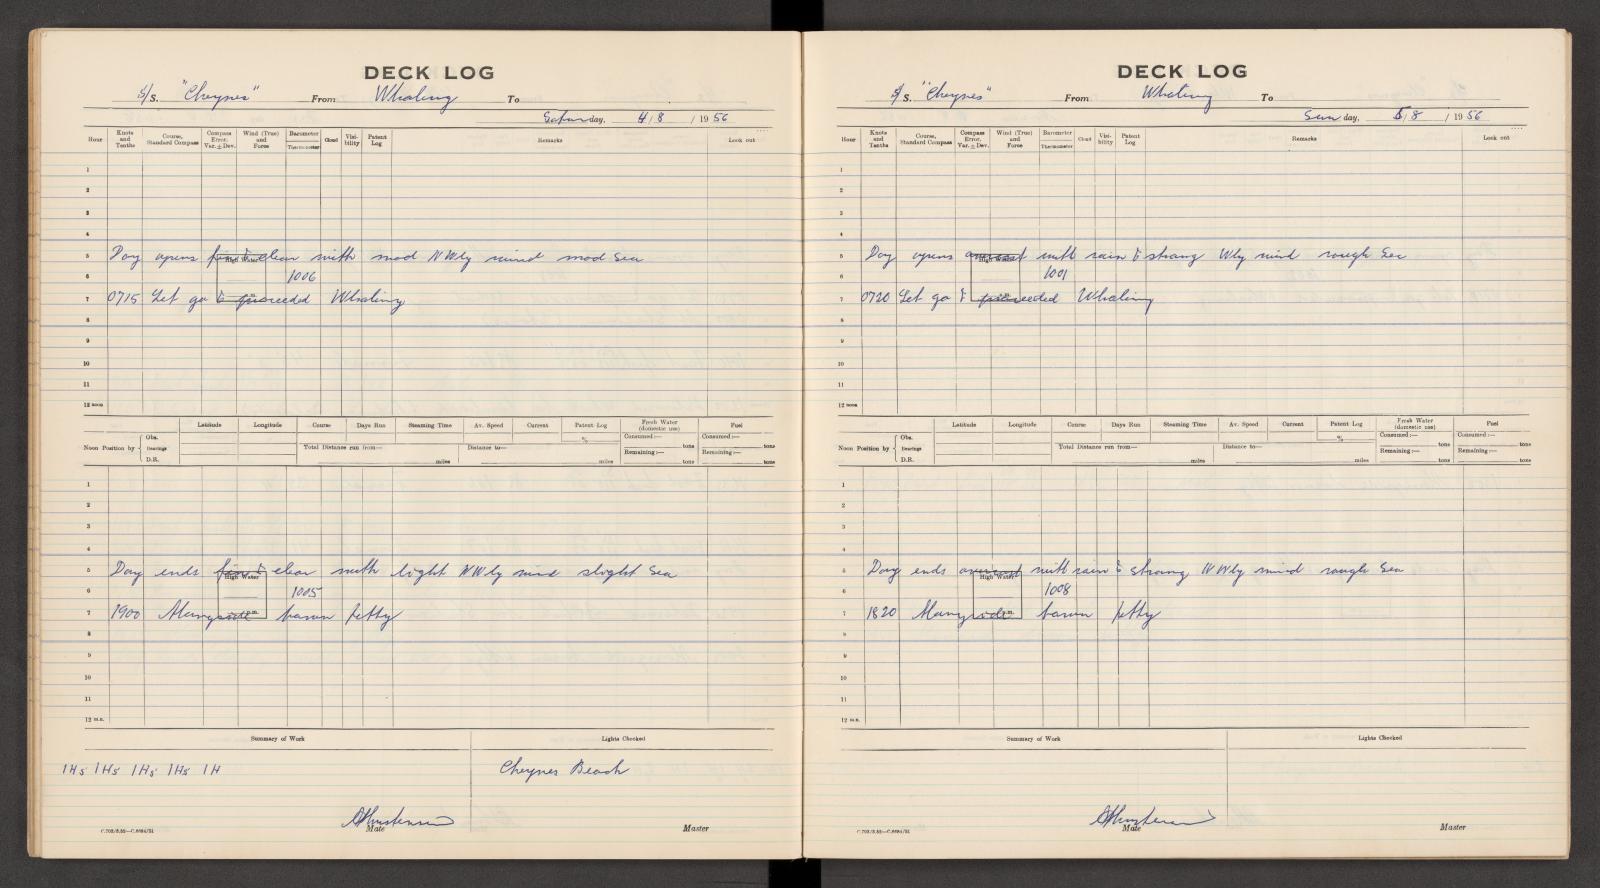 DECK LOG
S/S. "Cheynes" From Whaling To
Saturday, 4/8/1956
Hour Knots and Tenths Course, Standard Compass Compass Error, Var. ± Dev. Wind (True) and Force Barometer Thermometer Cloud Visibility Patent Log Remarks Look out
1
2
3
4
5 Day opens fine & clear with mod NWly wind mod Sea
High Water
6 1006
7 0715 Let go & proceeded Whaling
8
9
10
11
12 noon
Latitude Longitude Course Days Run Steaming Time Av. Speed Current Patent Log % Fresh Water (domestic use) Fuel
Noon Position by Obs. Bearings D.R.
Total Distance run from— miles Distance to— miles
Consumed:— tons Consumed:— tons
Remaining:— tons Remaining:— tons
1
2
3
4
5 Day ends fine & clear with light NWly wind slight Sea
High Water
6 1005
7 1900 Alongside barun Jetty
p.m.
8
9
10
11
12 m.n.
Summary of Work Lights Checked
1Hs 1Hs 1Hs 1Hs 1H Cheynes Beach
Mate Master
DECK LOG
S/S. "Cheynes" From Whaling To
Sunday, 5/8/1956
Hour Knots and Tenths Course, Standard Compass Compass Error, Var. ± Dev. Wind (True) and Force Barometer Thermometer Cloud Visibility Patent Log Remarks Look out
1
2
3
4
5 Day opens overcast with rain & strong Wly wind rough Sea
High Water
6 1001
7 0720 Let go & proceeded Whaling
8
9
10
11
12 noon
Latitude Longitude Course Days Run Steaming Time Av. Speed Current Patent Log % Fresh Water (domestic use) Fuel
Noon Position by Obs. Bearings D.R.
Total Distance run from— miles Distance to— miles
Consumed:— tons Consumed:— tons
Remaining:— tons Remaining:— tons
1
2
3
4
5 Day ends overcast with rain & strong NWly wind rough Sea
High Water
6 1008
7 1820 Alongside barun Jetty
p.m.
8
9
10
11
12 m.n.
Summary of Work Lights Checked
Mate Master